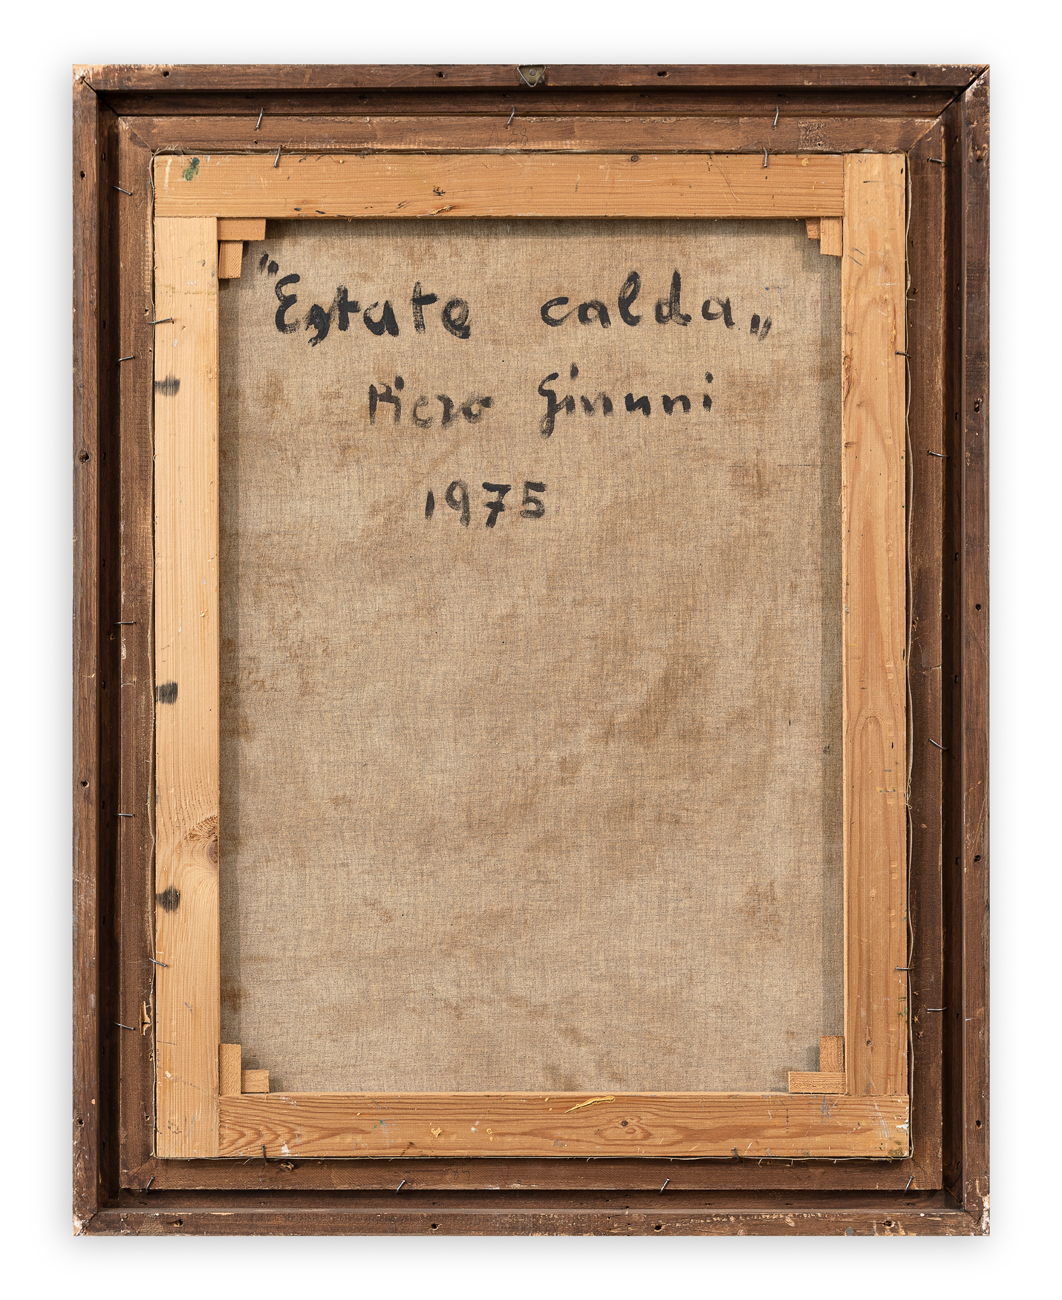 "Estate calda„
Piero Giunni
1975